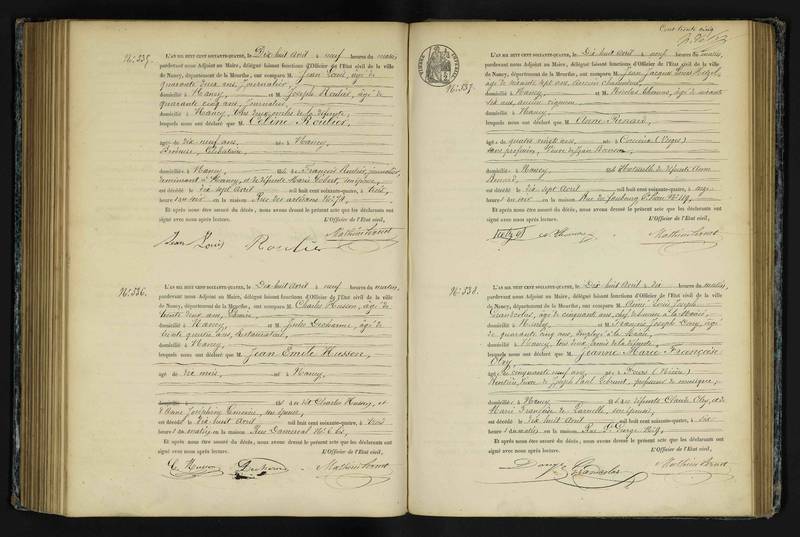 No. 335.
L'AN MIL HUIT CENT SOIXANTE-QUATRE, le Dix huit Avril à neuf heures du matin,
pardevant nous Adjoint au Maire, délégué faisant fonctions d'Officier de l'Etat civil de la ville
de Nancy, département de la Meurthe, ont comparu M. Jean Louis, âgé de
quarante deux ans, journalier,
domicilié à Nancy, et M. Joseph Roulier, âgé de
quarante cinq ans, journalier,
domicilié à Nancy, tous deux oncles de la défunte,
lesquels nous ont déclaré que M. Céline Roulier,
âgée de dix neuf ans, née à Nancy,
Brodeuse, Célibataire,
domiciliée à Nancy, fille de François Roulier, journalier,
demeurant à Nancy, et de défunte Marie Hobert, son épouse,
est décédée le dix sept Avril mil huit cent soixante-quatre, à trois
heures du soir en la maison Rue des artisans No. 78,
Et après nous être assuré du décès, nous avons dressé le présent acte que les déclarants ont
signé avec nous après lecture. L'Officier de l'Etat civil,
Jean Louis Roulier
No. 336.
L'AN MIL HUIT CENT SOIXANTE-QUATRE, le Dix huit Avril à neuf heures du matin,
pardevant nous Adjoint au Maire, délégué faisant fonctions d'Officier de l'Etat civil de la ville
de Nancy, département de la Meurthe, ont comparu M. Charles Husson, âgé de
trente deux ans,
domicilié à Nancy, et M. Jules Decharme, âgé de
trente quatre ans, restaurateur,
domicilié à Nancy,
lesquels nous ont déclaré que M. Jean Emile Husson,
âgé de dix mois, né à Nancy,
domicilié à fils du dit Charles Husson, et
d'Anne Joséphine son épouse,
est décédé le dix huit Avril mil huit cent soixante-quatre, à trois
heures du matin en la maison Rue No. 6 bis,
Et après nous être assuré du décès, nous avons dressé le présent acte que les déclarants ont
signé avec nous après lecture. L'Officier de l'Etat civil,
C. Husson Decharme
Cent trente cinq
No. 337.
L'AN MIL HUIT CENT SOIXANTE-QUATRE, le Dix huit Avril à neuf heures du matin,
pardevant nous Adjoint au Maire, délégué faisant fonctions d'Officier de l'Etat civil de la ville
de Nancy, département de la Meurthe, ont comparu M. Jean Jacques Louis
âgé de soixante sept ans, ancien charpentier,
domicilié à Nancy, et M. Nicolas âgé de soixante
six ans, ancien vigneron,
domicilié à Nancy,
lesquels nous ont déclaré que M. Anne Renard,
âgée de quatre vingts ans, née à (Vosges)
sans profession, Veuve de
domiciliée à Nancy fille de défunte Anne
est décédée le dix sept Avril mil huit cent soixante-quatre, à onze
heures du soir en la maison Rue du faubourg St. Jean No. 49,
Et après nous être assuré du décès, nous avons dressé le présent acte que les déclarants ont
signé avec nous après lecture. L'Officier de l'Etat civil,
No. 338.
L'AN MIL HUIT CENT SOIXANTE-QUATRE, le Dix huit Avril à dix heures du matin,
pardevant nous Adjoint au Maire, délégué faisant fonctions d'Officier de l'Etat civil de la ville
de Nancy, département de la Meurthe, ont comparu M. Louis Joseph
Grandcolas, âgé de cinquante ans, chef de bureau à la Mairie,
domicilié à Nancy, et M. François Joseph Dory, âgé
de quarante cinq ans, employé à la Mairie,
domicilié à Nancy, tous deux amis de la défunte,
lesquels nous ont déclaré que M. Jeanne Marie Françoise
Olry,
âgée de cinquante neuf ans, née à (Nièvre)
Rentière, Veuve de Joseph Paul professeur de musique,
domiciliée à Nancy, fille des défunts Claude Olry, et de
Marie Françoise son épouse,
est décédée le dix huit Avril mil huit cent soixante-quatre, à six
heures du matin en la maison Rue St. Dizier
Et après nous être assuré du décès, nous avons dressé le présent acte que les déclarants ont
signé avec nous après lecture. L'Officier de l'Etat civil,
Grandcolas